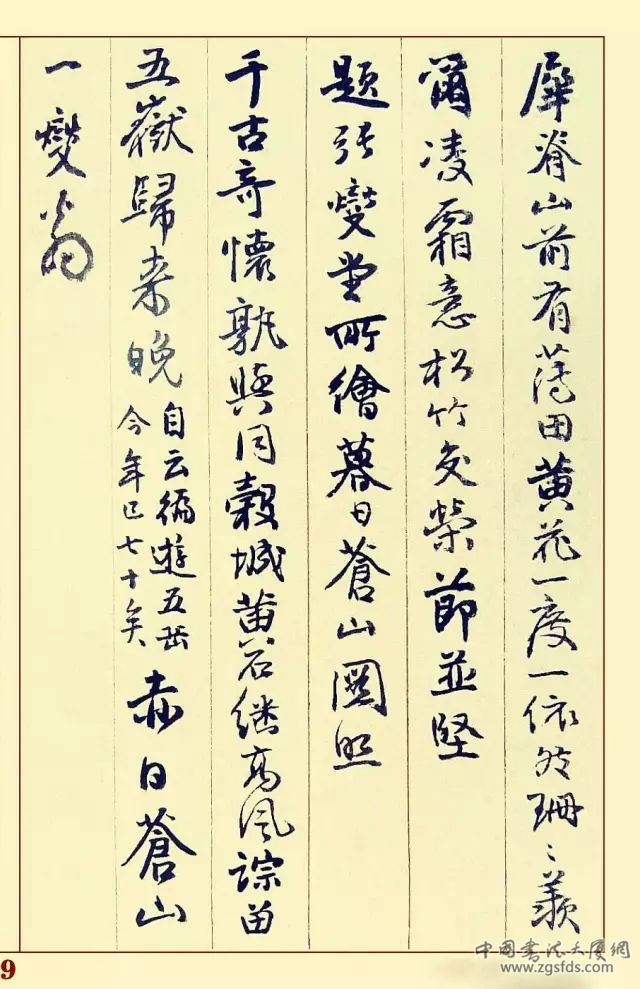 犀脊山前有薄田黄花一度一依然珊々羡
爾凌霜意松竹交榮節並堅
題張燮堂所繪暮日蒼山圖照
千古奇懷孰與同穀城黄石继高風踪留
五嶽歸来晚
自云徧遊五岳
今年已七十矣
赤日蒼山
一燮翁
9
中国书法大厦網
www.zgsfds.com